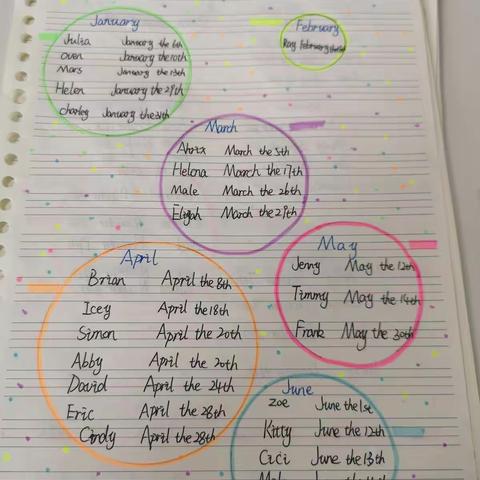 January
Julia January the 6th
Oven January the 10th
Mars January the 13th
Helen January the 29th
Charley January the 31th
February
Ray February the
March
March the 5th
Helena March the 17th
Male March the 26th
Elijah March the 29th
April
Brian April the 8th
Icey April the 18th
Simon April the 20th
Abby April the 20th
David April the 24th
Eric April the 28th
Cindy April the 28th
May
Jenny May the 12th
Timmy May the 14th
Frank May the 30th
June
Zoe June the 1st
Kitty June the 12th
CiCi June the 13th